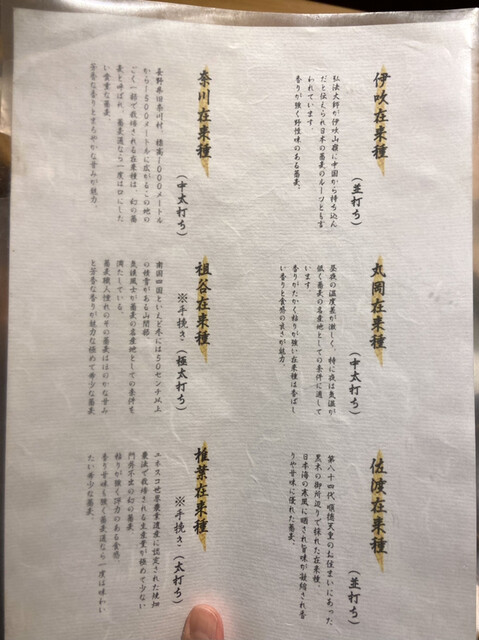 伊吹在来種
(並打ち)
弘法大師が伊吹山麓に中国から持ち込ん
だと伝えられ日本の蕎麦のルーツとも言
われています
香りが強く野性味のある蕎麦。
丸岡在来種
(中太打ち)
昼夜の温度差が激しく、特に夜は気温が
低く蕎麦の名産地としての条件に適して
います。
香りがたかく粘りが強い在来種は香ばし
い香りと食感の良さが魅力。
佐渡在来種
(並打ち)
第八十四代 順徳天皇のお住まいにあった
黒木の御所辺りで採れた在来種。
日本海の寒風に晒され旨味が凝縮され香
りや甘味に優れた蕎麦。
奈川在来種
(中太打ち)
長野県旧奈川村、標高1000メートル
から1500メートルに広がるこの地の
ごく一部で栽培される在来種は、幻の蕎
麦と呼ばれ、蕎麦通なら一度は口にした
い貴重な蕎麦。
芳香な香りとまろやかな甘みが魅力。
祖谷在来種
※手挽き(極太打ち)
南国四国といえど冬には50センチ以上
の積雪がある山間部。
気候風土が蕎麦の名産地としての条件を
満たしている。
蕎麦職人憧れのその蕎麦はほのかな甘み
と芳香な香りが魅力な極めて希少な蕎麦
椎葉在来種
※手挽き(太打ち)
ユネスコ世界農業遺産に認定された焼畑
農法で栽培される生産量が極めて少ない
門外不出の幻の蕎麦
粘りが強く弾力のある食感、
香り甘味も強く蕎麦通なら一度は味わい
たい希少な蕎麦。